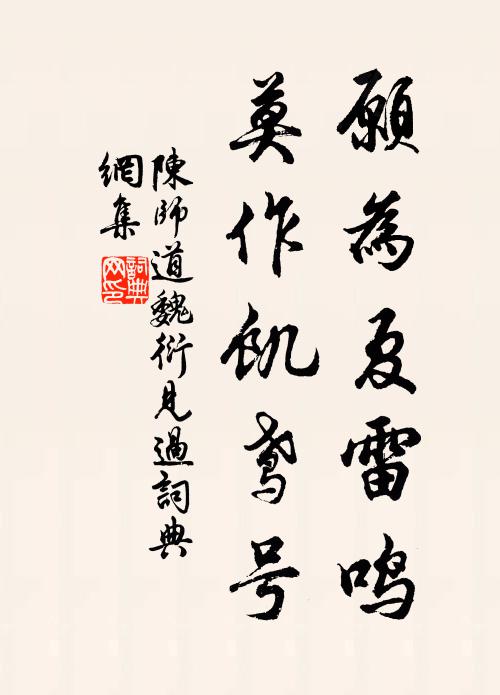 願為夏雷鳴
莫作飢鳶号
陳師道魏衍見過詞典
網集
詞典
网印